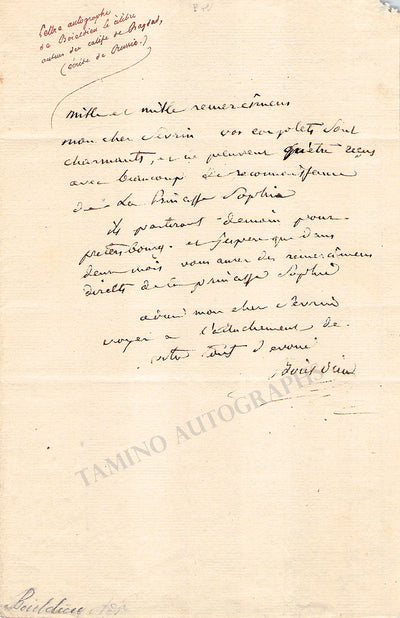 Lettre autographe
de Boieldieu le célèbre
auteur du calife de Bagdad,
(écrite de Russie.)
Mille et mille remercîmens
mon cher Sevrin vos couplets sont
charmants, et ne peuvent qu'être reçus
avec beaucoup de reconnoissance
de La Princesse Sophie
ils partiront demain pour
petersbourg. et j'espere que dans
deux mois vous aurez des remercimens
directs de la princesse Sophie
adieu mon cher Sevrin
croyez a l'attachement de
votre tout devoué
Boieldieu
TAMINO AUTOGRAPHS
Boieldieu